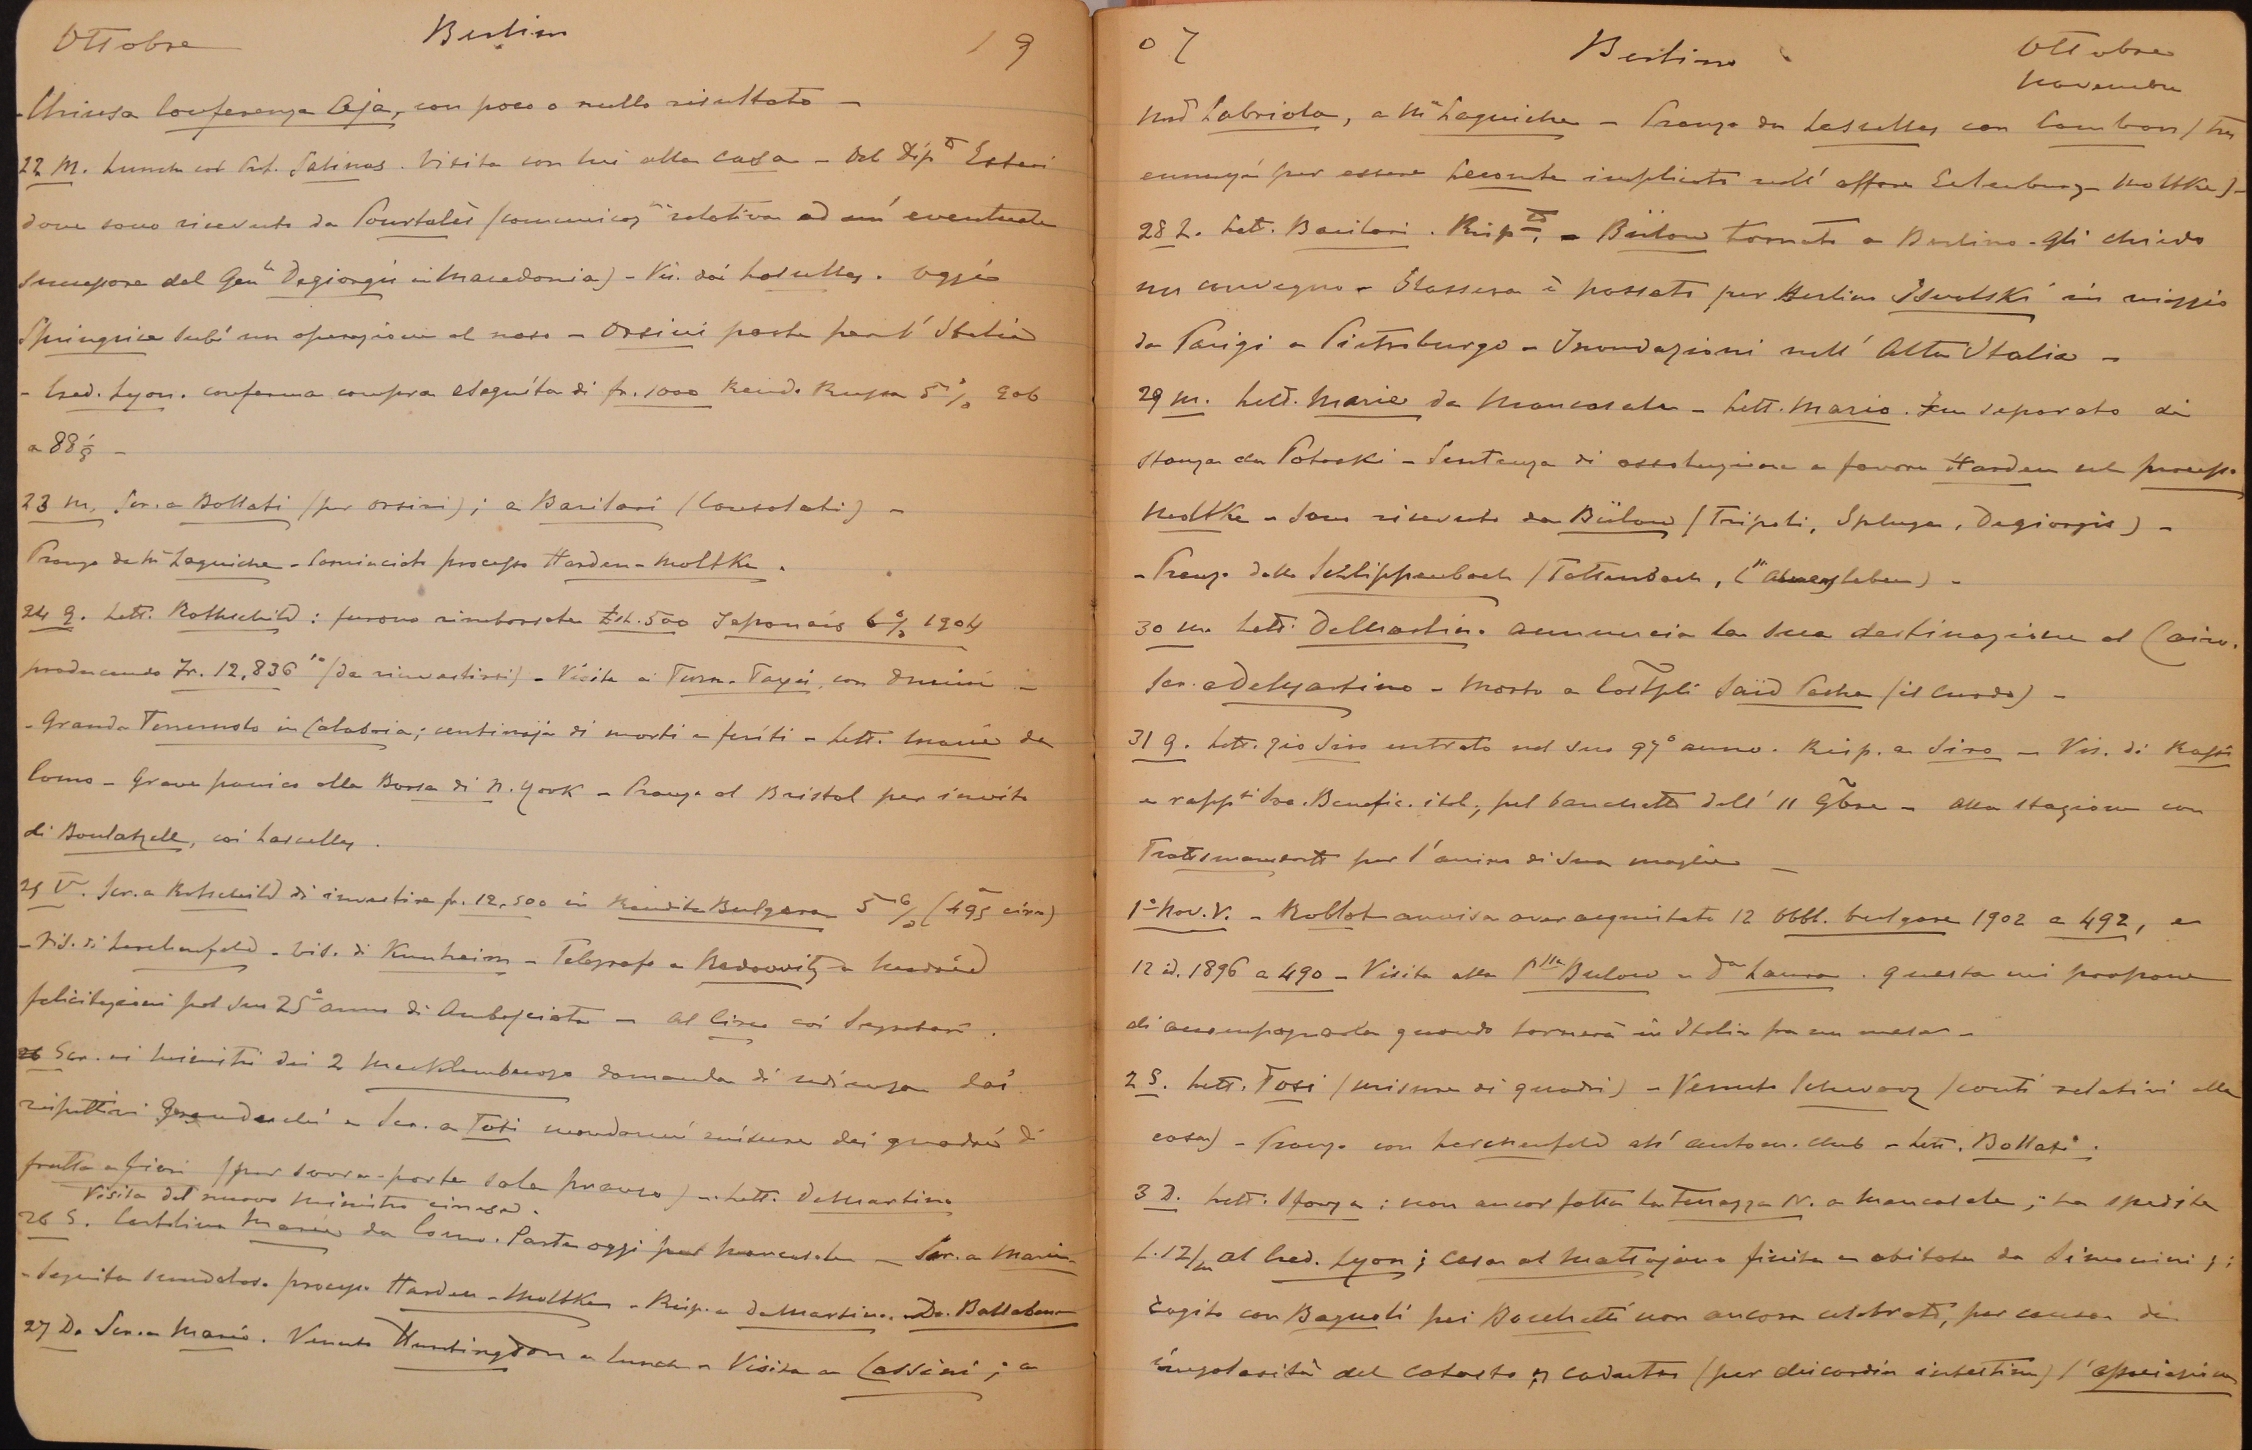 Ottobre Berlino 19
- Chiusa Conferenza Aja, con poco o nullo risultato -
22 M. Lunch col Salinas. Visita con lui alla casa - Dal Dip.to Esteri
dove sono ricevuto da Pourtalès (comunicaz.ni relativa ad un' eventuale
successore del Gen.le Degiorgis in Macedonia) - Vis. dai Lascelles. Oggi
subì un operazione al naso - Orsini parte per l'Italia
- Cred. Lyon. conferma compra eseguita di fr. 1000 Rend. Russa 5% 906
a 88 1/8 -
23 M. Scr. a Bollati (per Orsini); a Barilari (Consolati) -
Pranzo da M.se Laguiche - Cominciato processo Harden-Moltke.
24 G. Lett. Rothschild: furono rimborsate Lst. 500 Japonais 6% 1904
producendo Fr. 12,836 10 (da rinvestirsi) - Visita a Turn-Taxis, con
- Grande Terremoto in Calabria; centinaja di morti e feriti - Lett. Marie da
Como - Grave panico alla Borsa di N. York - Pranzo al Bristol per invito
di Boulatzell, coi Lascelles.
25 V. Scr. a Rotschild di investire fr. 12,500 in Rendita Bulgara 5% (495 circa)
- Vis. di Lerchenfeld - Vis. di Kunheim - Telegrafo a Radowitz a Madrid
felicitazioni pel suo 25° anno di Ambasciata - Al Circo coi Segretari.
26 Scr. ai Ministri dei 2 Mecklemburgo domanda di udienza dai
rispettivi Granduchi - Scr. a Tosi mandarmi misure dei quadri di
frutta e fiori (per sovra-porte sala pranzo) - Lett. DeMartino
Visita del nuovo Ministro cinese.
26 S. Cartolina Marie da Como. Parte oggi per Mancasale - Scr. a Marie -
- Seguita scandaloso processo Harden-Moltke - Risp. a DeMartino.
27 D. Scr. a Marie. Venuto Huntingdon a lunch - Visita a Cassini; a
07 Berlino Ottobre
Novembre
Mad Labriola, a M.se Laguiche - Pranzo da Lascelles con Cambon (très
ennuyé per essere Lecomte implicato nell' affare Eulenburg-Moltke) -
28 L. Lett. Barilari. Risp.to - Bülow tornato a Berlino - gli chiedo
un convegno - Stassera è passato per Berlino Isvolski in viaggio
da Parigi a Pietroburgo - Inondazioni nell' Alta Italia -
29 M. Lett. Marie da Mancasale - Lett. Mario. Fu separato di
stanza da Potoski - Sentenza di assoluzione a favore Harden nel processo
Moltke - Sono ricevuto da Bülow (Tripoli, Spluga, Degiorgis) -
- Pranzo dalla Schlippenbach (Tattenbach, C.ssa Alvensleben) -
30 M. Lett. DeMartino. annuncia la sua destinazione al Cairo.
Scr. a DeMartino - Morto a Cost.pli Saïd Pacha (il Curdo) -
31 G. Lett. Zio Siro entrato nel suo 97° anno. Risp. a Siro - Vis. di
e rapp.ti Soc. Benefic. ital. pel banchetto dell' 11 9bre - alla stazione con
per l'arrivo di sua moglie -
1° Nov. V. - Rollot avvisa aver acquistato 12 obbl. bulgare 1902 a 492, e
12 id. 1896 a 490 - Visita alla P.ssa Bulow e D.a Laura. questa mi propone
di accompagnarla quando tornerà in Italia fra un mese -
2 S. Lett. Tosi (misure di quadri) - Venuto Schwarz (conti relativi alla
casa) - Pranzo con Lerchenfeld all' autom. club - Lett. Bollati.
3 D. Lett. Sforza: non ancor fatta la Terrazza N. a Mancasale; ha spedito
L. 12/m al Cred. Lyon; casa al finita e abitata da Simonini;
rogito con Bagnoli pei Bocchetti non ancora celebrato, per causa di
irregolarità del catasto; caduta (per discordia intestina) l'associazione